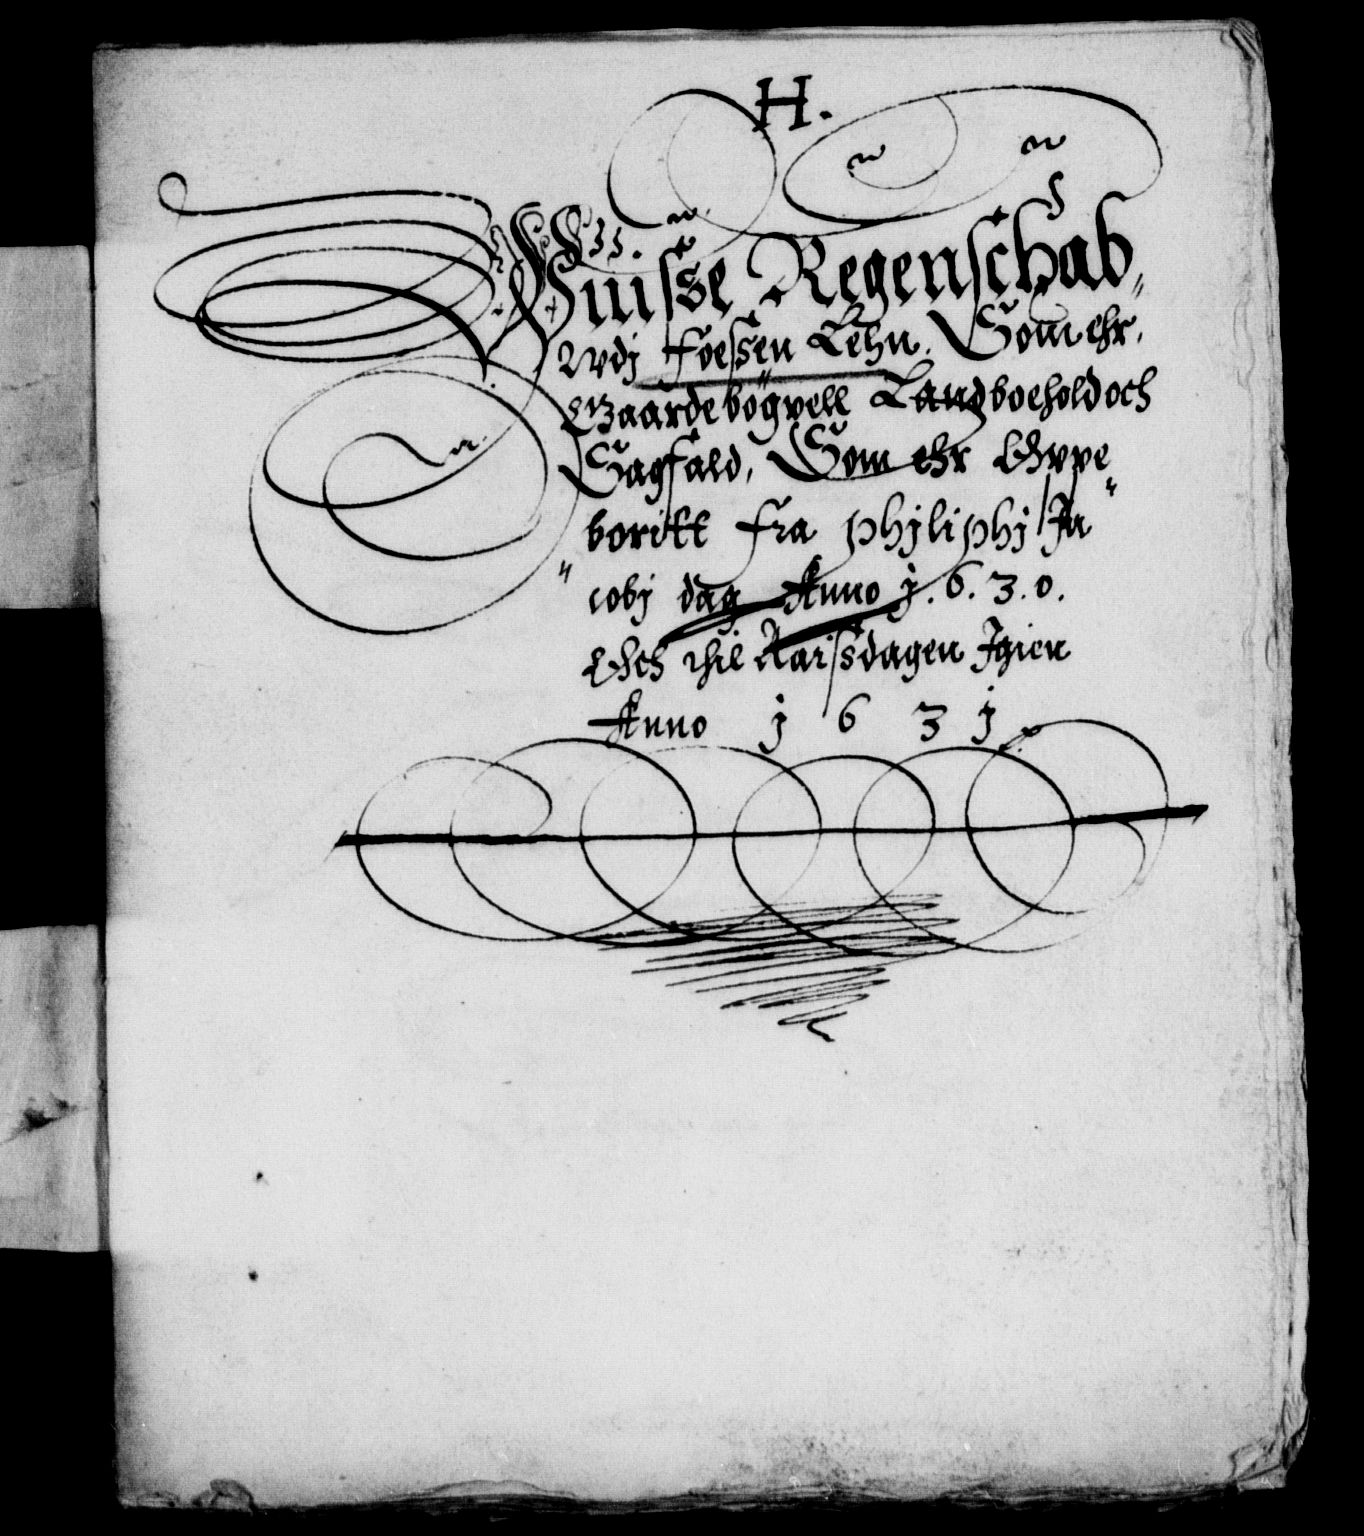 H.
Wuisse Regenschab,
Wdj Foessen Lehn. Som ehr,
Gaarde bögvell Landboehold och
Sagfald, Som ehr Oppe"
borit fra philiphj Ja
" cobj dag Anno j.6.3.0.
Och thil Aarissdagen Igien
Anno j 6 3 j